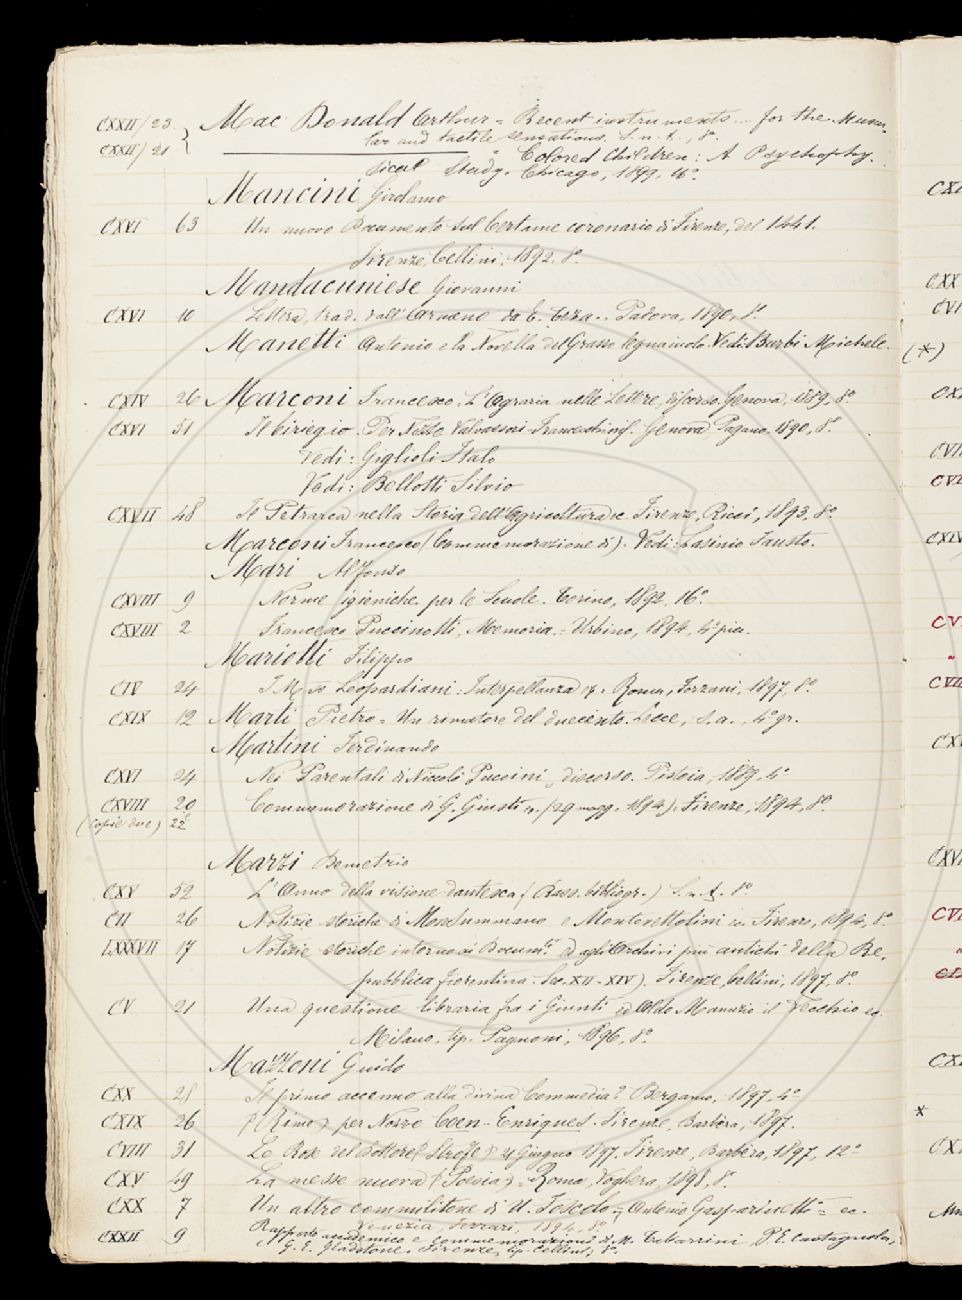 CXXII/23. Mac Donald Arthur = Recent instruments... for the Muscu-
CXXII/21 lar and tactile sensations. S. n. t., 8°.
" Colored Children: A Psychophy-
sical Study. Chicago, 1899, 16°.
Mancini Girolamo
CXVI 63 Un nuovo Documento sul Certame coronario di Firenze, del 1441.
Firenze, Cellini, 1892. 8°.
Mandacuniese Giovanni
CXVI 10 Lettera, trad. dall'Armeno da E. Teza. Padova, 1890, 8°.
Manetti Antonio e la Novella del Grasso legnaiuolo. Vedi: Barbi Michele.
(*)
CXIV 26 Marconi Francesco. L'Agraria nelle Lettere, discorso. Genova, 1889. 8°
CXVI 31 Il ciregio. Per Nozze Valvassori-Franceschini. Genova, Pagano, 1890, 8°.
Vedi: Giglioli Italo
Vedi: Bellotti Silvio
CXVII 48 Il Petrarca nella Storia dell'Agricoltura Firenze, Ricci, 1893, 8°.
Marconi Francesco (Commemorazione di). Vedi: Lasinio Fausto.
Mari Alfonso
CXVIII 9 Norme igieniche per le Scuole. Torino, 1892. 16°.
CXVIII 2 Francesco Puccinotti, Memoria. = Urbino, 1894, 4° picc.
Mariotti Filippo
CIV 24 I Mss Leopardiani: Interpellanza Roma, Forzani, 1897, 8°.
CXIX 12 Marti Pietro = Un rimatore del duecento. Lecce, s. a., 4° gr.
Martini Ferdinando
CXVI 24 Nei Parentali di Niccolò Puccini, discorso. Pistoia, 1889, 4°
CXVIII 20 Commemorazione di G. Giusti (29 magg. 1894). Firenze, 1894, 8°.
(Copie due) 22
Marzi Demetrio
CXV 52 L'Anno della visione dantesca (Rass. bibliogr.) S. n. t. 8°.
CII 26 Notizie storiche di Monsummano e Montevettolini Firenze, 1894, 8°
LXXXVII 17 Notizie storiche intorno ai Documti ed agli Archivi più antichi della Re-
pubblica fiorentina. Sec. XII-XIV). Firenze, Cellini, 1897. 8°.
CV 21 Una questione libraria fra i Giunti ed Aldo Manuzio il Vecchio ec.
Milano, tip. Pagnoni, 1896, 8°.
Mazzoni Guido
CXX 28 Il primo accenno alla divina Commedia? Bergamo, 1897, 4°
CXIX 26 (Rime) per Nozze Coen-Enriques. Firenze, Barbèra, 1897.
CVIII 31 Le Rose del Dottore (Strofe) Giugno 1897, Firenze, Barbèra, 1897, 12°
CXV 49 La messe nuova (Poesia) = Roma, Voghera, 1898, 8°.
CXX 7 Un altro commilitone di U. Foscolo = Antonio Gasparinetti = ec.
Venezia, Ferrari, 1894, 8°.
CXXII 9 Rapporto accademico e commemorazioni di M. Tabarrini, P. E. Castagnola,
G. E. Gladstone. Firenze, tip. Cellini, 8°.